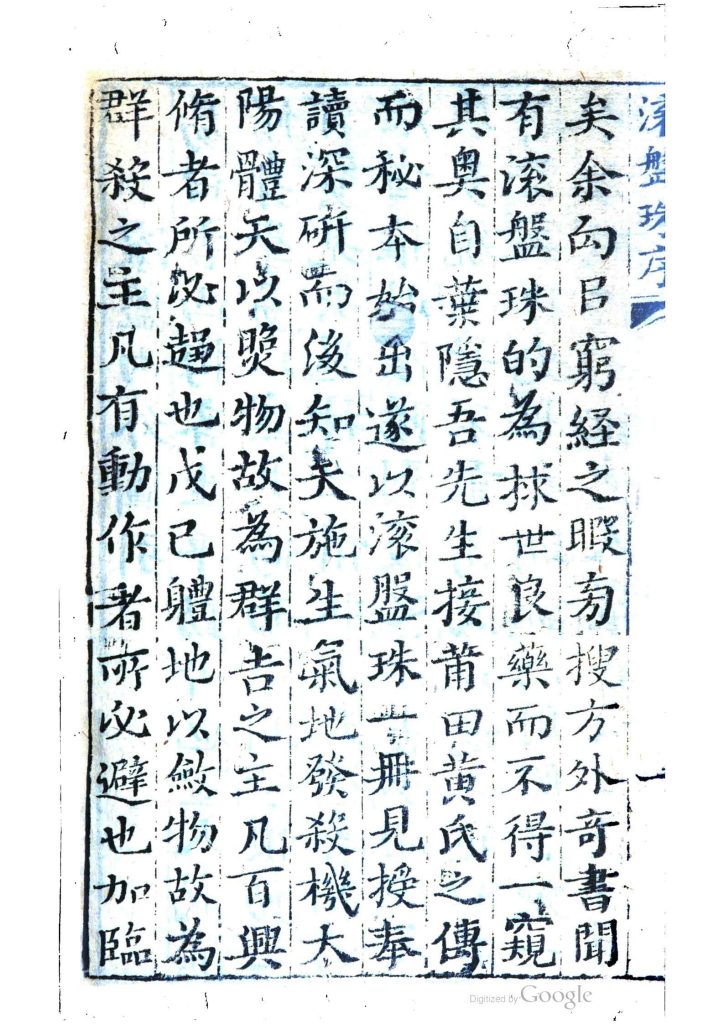 滾盤珠序
矣余向日窮経之暇旁搜方外奇書聞
有滚盤珠的為捄世良藥而不得一窺
其奧自葉隱吾先生接莆田黄氏之傳
而秘本始出遂以滚盤珠一冊見授奉
讀深研而後知天施生氣地發殺機太
陽體天以煖物故為群吉之主凡百興
脩者所必趨也戊己軆地以斂物故為
群殺之主凡有動作者所必避也加臨
一
Digitized by Google